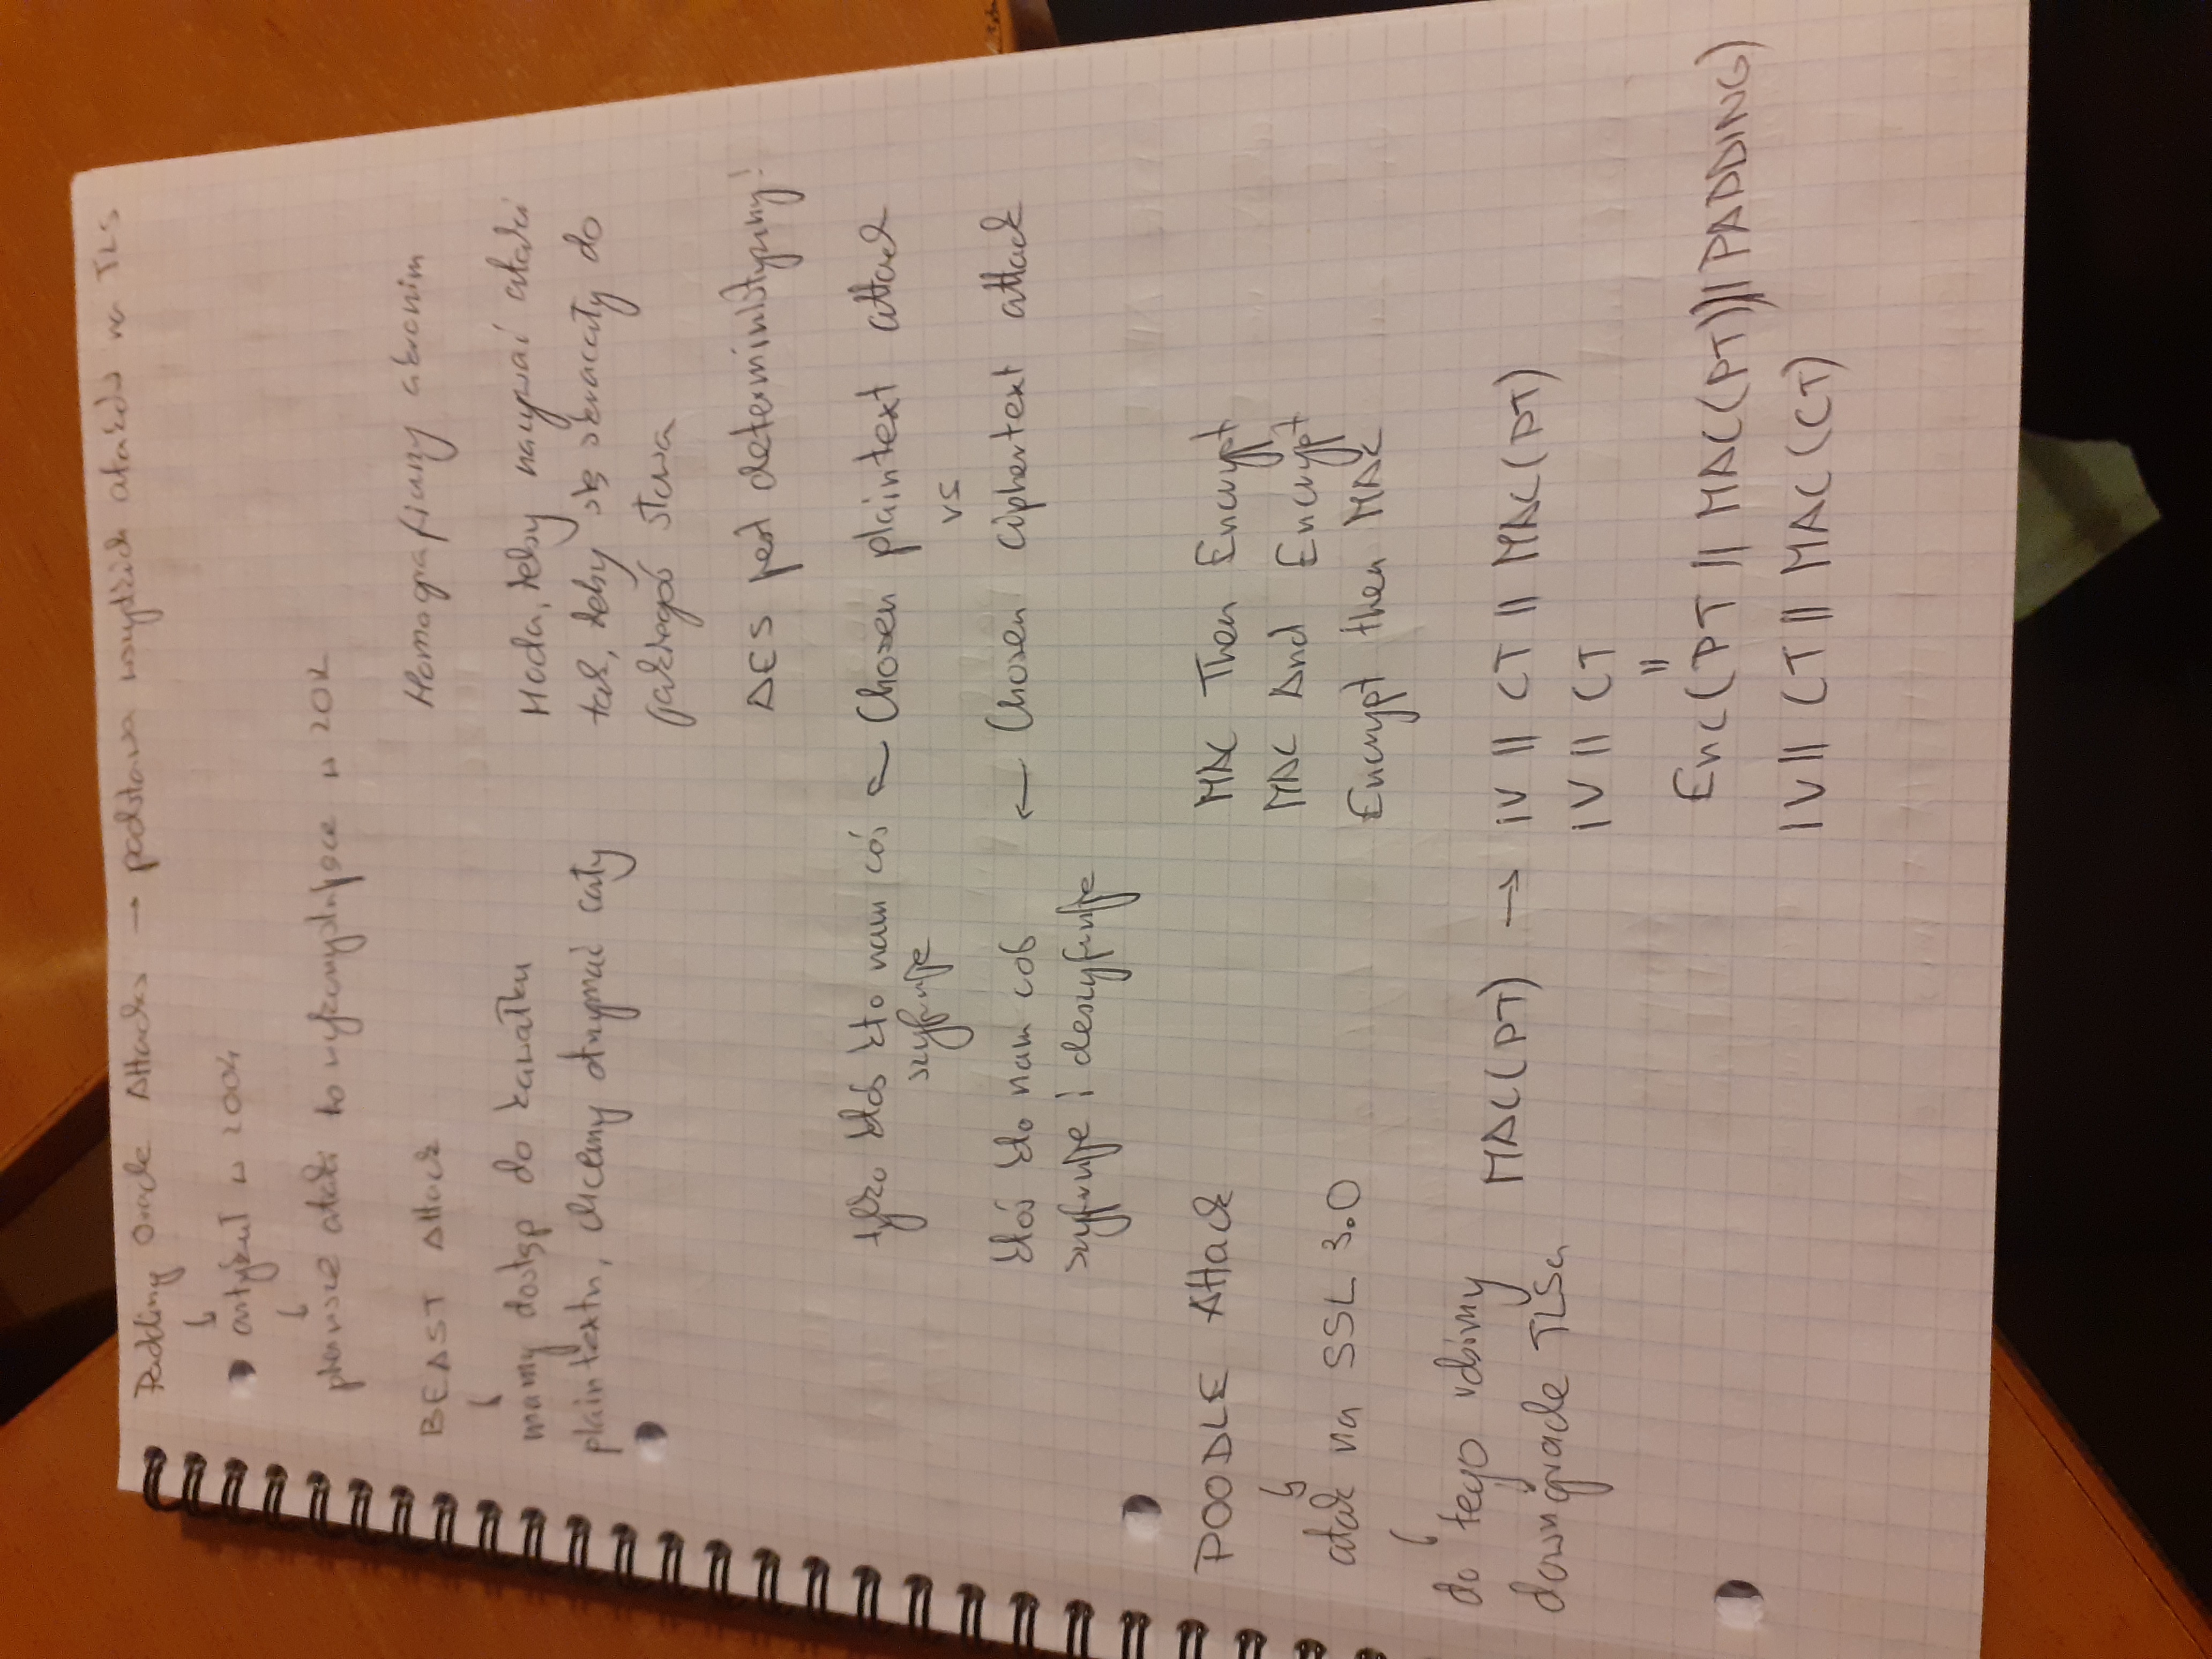 Padding Oracle Attacks → podstawa wszystkich ataków na TLS
artykuł w 2004
pierwsze ataki to wykorzystujące w
BEAST Attack
mamy dostęp do kawałku
plaintextu, chcemy otrzymać cały
Homograficzny akronim
Moda, żeby nazywać ataki
tak, żeby się skracały do
jakiegoś słowa
AES jest deterministyczny!
tylko ktoś kto nam coś ← Chosen plaintext attack
szyfruje
vs
ktoś kto nam coś ← Chosen ciphertext attack
szyfruje i deszyfruje
POODLE Attack
atak na SSL 3.0
do tego robimy
downgrade TLSa
MAC Then Encrypt
MAC And Encrypt
Encrypt then MAC
MAC(PT) → IV || CT || MAC(PT)
IV || CT
||
Enc(PT || MAC(PT) || PADDING)
IV || CT || MAC(CT)